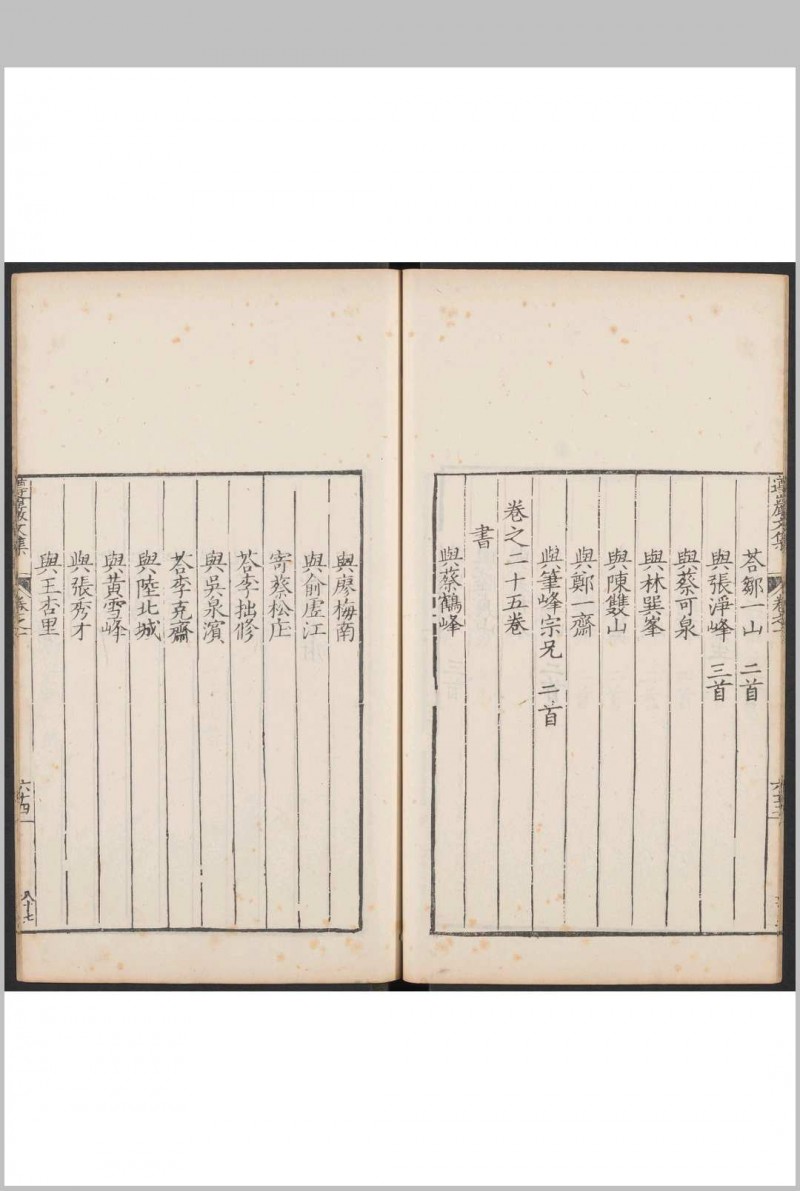 荅鄒一山 二首
與張淨峰 三首
與蔡可泉
與林巽峯
與陳雙山
與鄭一齋
與筆峰宗兄 二首
卷之二十五卷
書
與蔡鶴峰
與廖梅南
與俞虛江
寄蔡松庄
荅李拙修
與吳泉濱
荅李克齋
與陸北城
與黃雪峰
與張秀才
與王杏里
遵巖文集
六十四